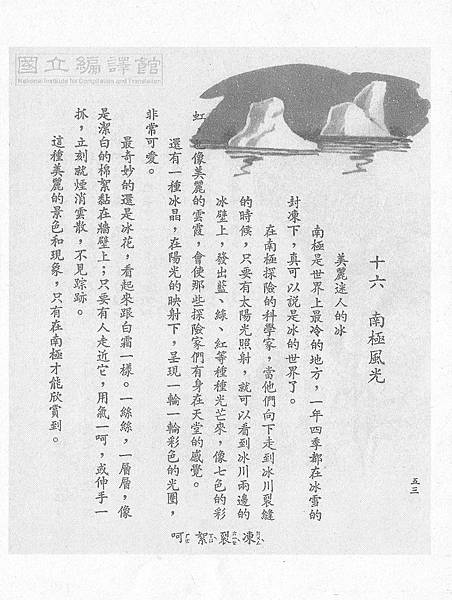 國立編譯館
National Institute for Compilation and Translation
十六 南極風光
美麗迷人的冰
南極是世界上最冷的地方，一年四季都在冰雪的
封凍下，真可以說是冰的世界了。
在南極探險的科學家，當他們向下走到冰川裂縫
的時候，只要有太陽光照射，就可以看到冰川兩邊的
冰壁上，發出藍、綠、紅等種種光芒來，像七色的彩
虹，也像美麗的雲霞，會使那些探險家們有身在天堂的感覺。
還有一種冰晶，在陽光的映射下，呈現一輪一輪彩色的光圈，
非常可愛。
最奇妙的還是冰花，看起來跟白霜一樣。一絲絲，一層層，像
是潔白的棉絮黏在牆壁上；只要有人走近它，用氣一呵，或伸手一
抓，立刻就煙消雲散，不見踪跡。
這種美麗的景色和現象，只有在南極才能欣賞到。
凍 裂 絮 呵
五三